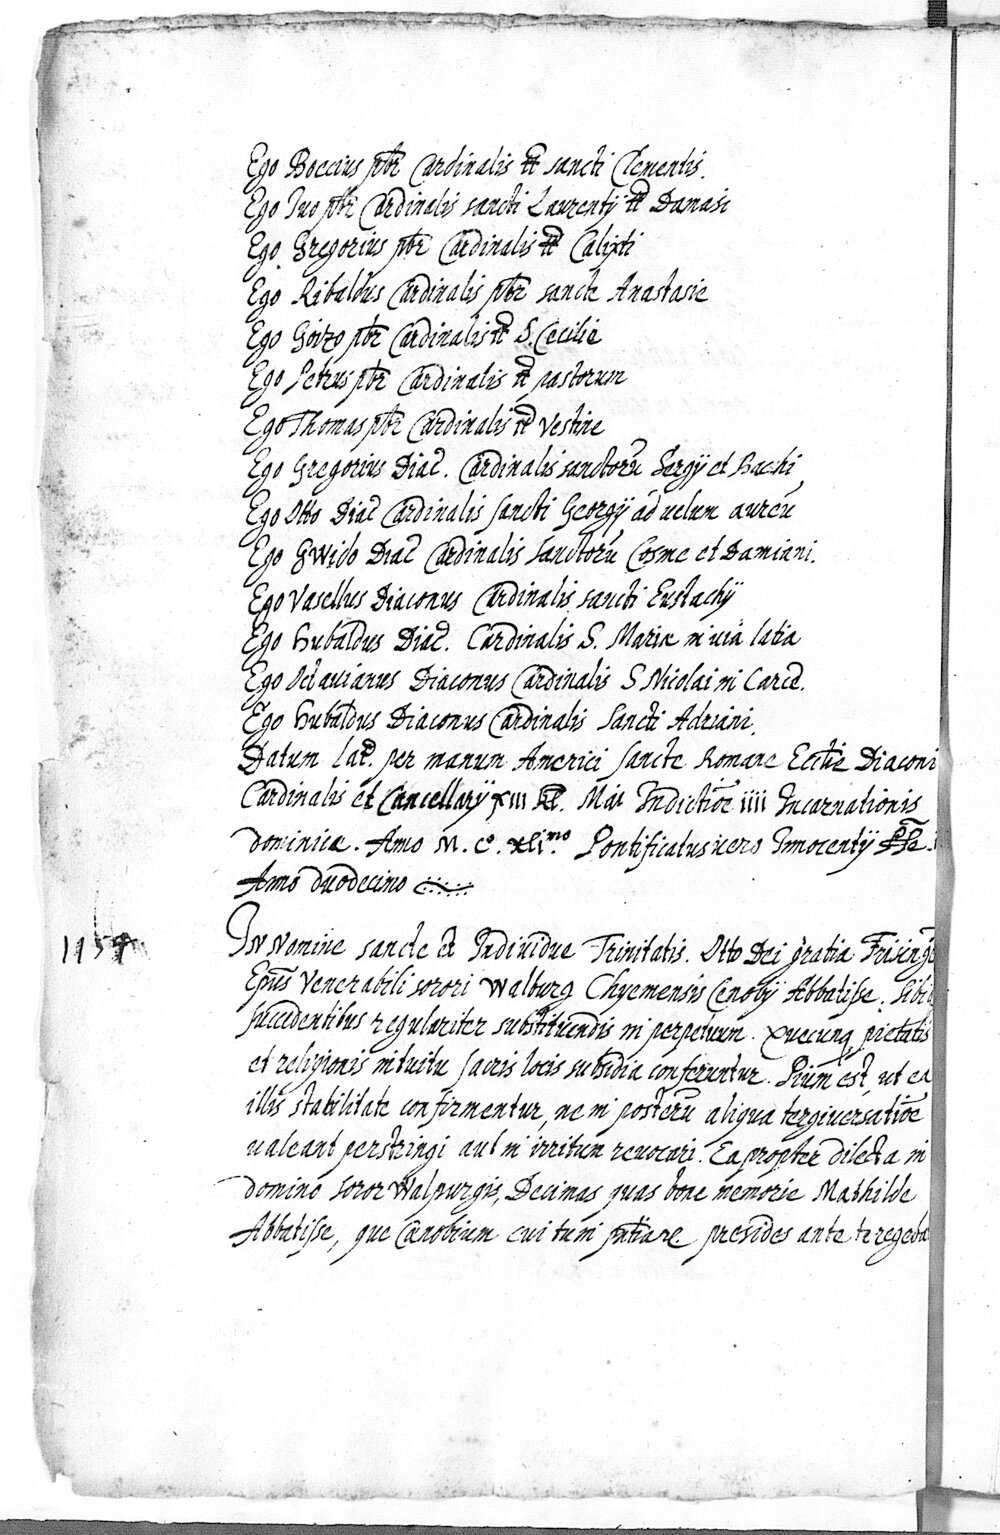 Ego Boecius pbr Cardinalis tt sancti Clementis.
Ego Iuo pbr Cardinalis sancti Laurentij tt Damasi
Ego Gregorius pbr Cardinalis tt Calixti
Ego Ribaldus Cardinalis pbr sancte Anastasie
Ego Goizo pbr Cardinalis tt S. Cecilie
Ego Petrus pbr Cardinalis tt pastorum
Ego Thomas pbr Cardinalis tt Vestine
Ego Gregorius Diac. Cardinalis sanctorū Sergij et Bachi
Ego Otto Diac Cardinalis sancti Georgij ad uelum aureū
Ego GWido Diac Cardinalis sanctorū Cosme et Damiani.
Ego Vasellus Diaconus Cardinalis sancti Eustachij
Ego Hubaldus Diac. Cardinalis S. Mariæ in uia latia
Ego Octauianus Diaconus Cardinalis S Nicolai in Carce.
Ego Hubaldus Diaconus Cardinalis Sancti Adriani.
Datum Lat. per manum Americi sancte Romane Ecclie Diaconi
Cardinalis et Cancellarij XIII Kl. Maii Indictiōe IIII Incarnationis
dominicæ. Anno M. C. XLI.mo Pontificatus uero Innocentij PPe.
Anno duodecimo
1157
In Nomine sancte et Indiuidue Trinitatis. Otto Dei gratia Frising
Epus Venerabili sorori Walburg Chyemensis Cenobij Abbatisse. sibi
succedentibus regulariter substituendis in perpetuum. Quecunq pietatis
et religionis intuitu sacris locis subsidia conferuntur. Pium est, ut ea
illis stabilitate confirmentur, ne in posterū aliqua tergiuersatiōe
ualeant perstringi aut in irritum reuocari. Ea propter dilecta in
domino soror Walpurgis, Decimas quas bone memorie Mathilde
Abbatisse, que Cœnobium cui tum præsides ante te regeba